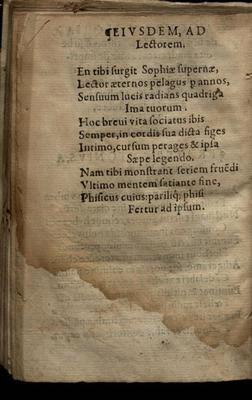 ¶EIVSDEM, AD
Lectorem.
En tibi surgit Sophiæ supernæ,
Lector æternos pelagus p annos,
Sensuum lucis radians quadriga
Ima tuorum.
Hoc brevi vita sociatus ibis
Semper, in cordis sua dicta figes
Intimo, cursum perages & ipsa
Sæpe legendo.
Nam tibi monstrant seriem fruẽdi
Vltimo mentem satiante fine,
Phisicus cuius: pariliq; phisi
Fertur ad ipsum.